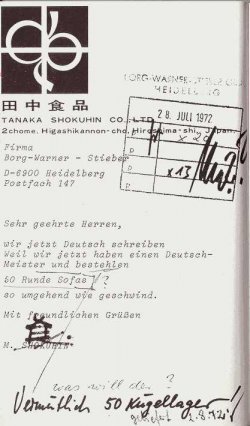 田中食品
TANAKA SHOKUHIN CO., LTD
2chome. Higashikannon-cho, Hiroshima-shi, Japan.
BORG-WARNER
HEIDELBERG
28. JULI 1972
Firma
Borg-Warner - Stieber
D-6900 Heidelberg
Postfach 147
D
D
D
x 13
Sehr geehrte Herren,
wir jetzt Deutsch schreiben
Weil wir jetzt haben einen Deutsch-
Meister und bestehlen
50 Runde Sofas ?
so umgehend wie geschwind.
Mit freundlichen Grüßen
M. SHOKUHIN
was will der ?
Vermutlich 50 Kugellager!